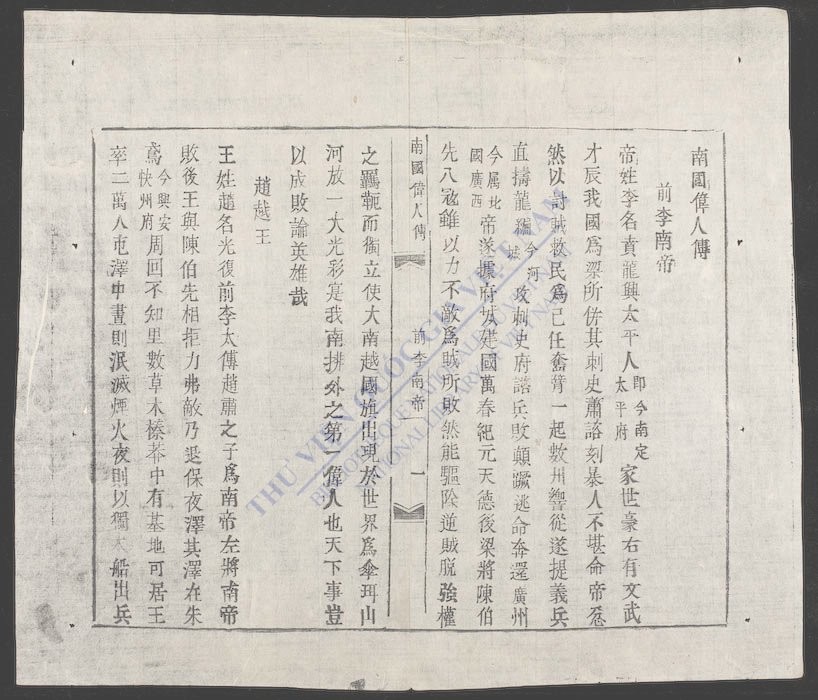 南國偉人傳
前李南帝
帝姓李名賁龍興太平人即今南定太平府家世豪右有文武
才辰我國爲梁所併其刺史蕭諮刻暴人不堪命帝忿
然以討賊救民爲己任奮臂一起數州響從遂提義兵
直擣龍編今河城攻刺史府諮兵敗顛蹶逃命奔還廣州
今属北國廣西帝遂據府城建國萬春紀元天德後梁將陳伯
先入冦雖以力不敵爲賊所敗然能驅除逆賊脫強權
南國偉人傳 前李南帝 一
之羈軛而獨立使大南越國旗出現於世界爲傘珥山
河放一大光彩寔我南排外之第一偉人也天下事豈
以成敗論英雄哉
趙越王
王姓趙名光復前李太傅趙肅之子爲南帝左將南帝
敗後王與陳伯先相拒力弗敵乃退保夜澤其澤在朱
鳶今興安快州府周回不知里數草木榛莽中有基地可居王
率二萬人屯澤中晝則泯滅煙火夜則以獨木船出兵
THƯ VIỆN QUỐC GIA VIỆT NAM
NATIONAL LIBRARY OF VIETNAM